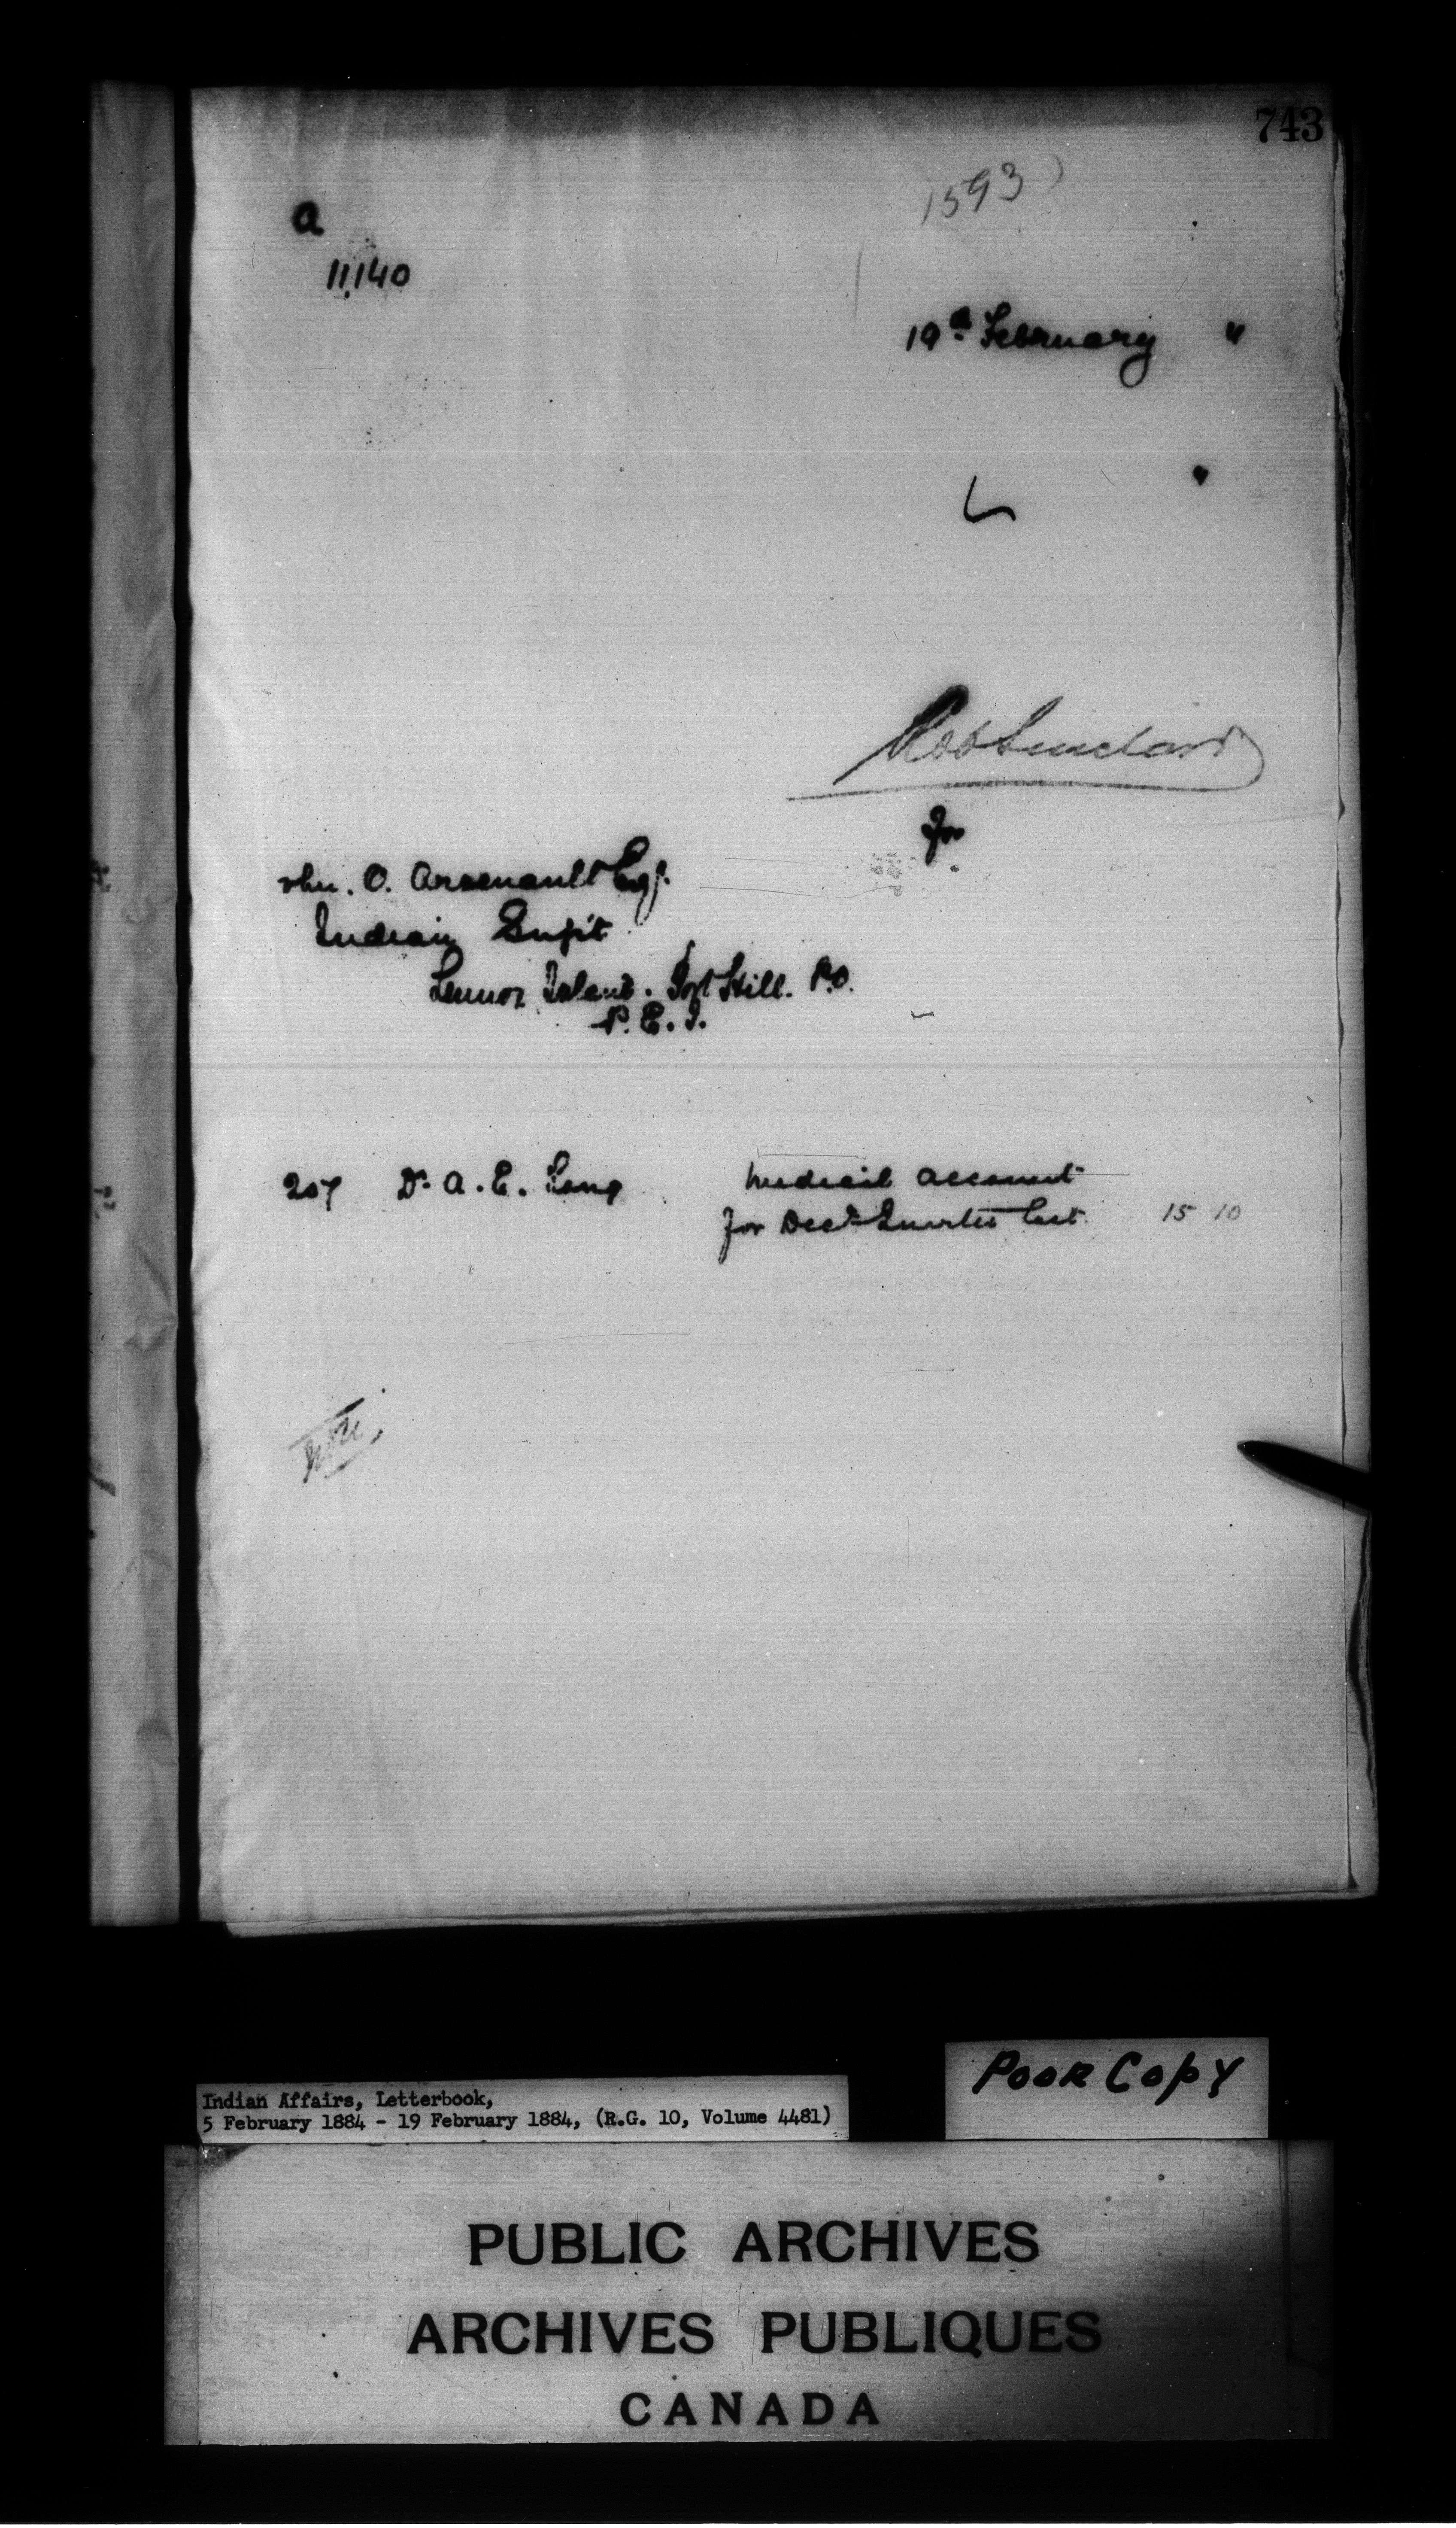 743
1593
a
11,140
19th February "
"
Rob Sinclair
for
O. Arsenault Esq.
Indian Supt
Lennox Island. Port Hill. P.O.
P. E. I.
207 Dr. A. E. Long Medical Account
for Decr Quarter last. 15 10
Indian Affairs, Letterbook,
5 February 1884 - 19 February 1884, (R.G. 10, Volume 4481)
Poor Copy
PUBLIC ARCHIVES
ARCHIVES PUBLIQUES
CANADA